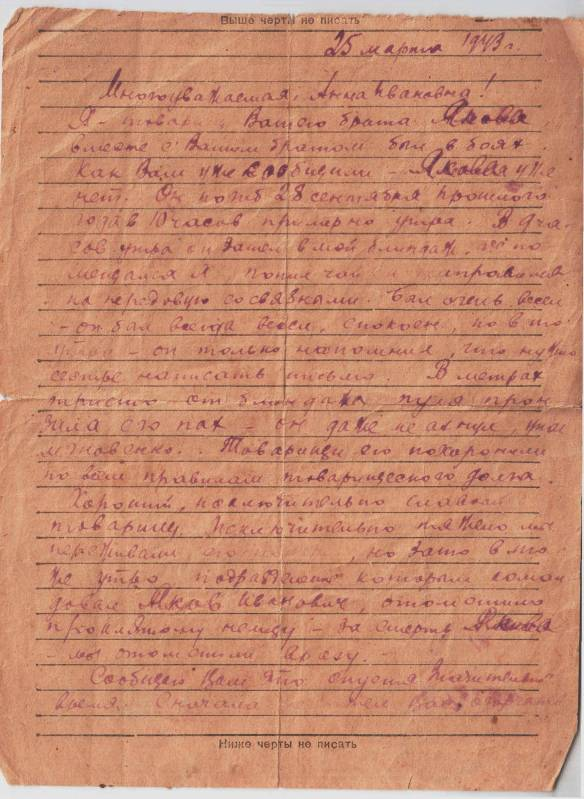 Выше черты не писать
25 марта 1943 г.
Многоуважаемая, Анна Ивановна!
Я - товарищ Вашего брата Якова,
вместе с Вашим братом был в боях.
Как Вам уже сообщили - Якова уже
нет. Он погиб 28 сентября прошлого
года в 10 часов примерно утра. В 9 ча-
сов утра он зашел в мой блиндаж,
попил чай и направился
на передовую со связными. Был очень весел
- он был всегда весел, спокоен, но в то
утро - он только напомнил, что нужно
сестре написать письмо. В метрах
тристо от блиндажа пуля прон
зила его пах - он даже не ахнул, умер
мгновенно. Товарищи его похоронили
по всем правилам товарищеского долга.
Хороший, исключительно славный
товарищ. Исключительно тяжело мы
переживали его, но зато в то
же утро подразделение которым коман
довал Яков Иванович, отомстило
проклятому немцу - за смерть Якова
- мы отомстили сразу. -
Сообщаю Вам это опустя значительное
время. Сначала Вас
Ниже черты не писать